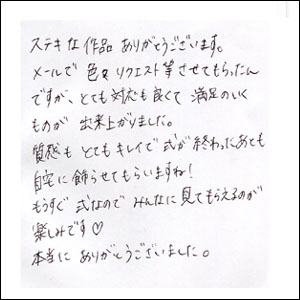 ステキな作品 ありがとうございます。
メールで 色々リクエスト等させてもらったん
ですが、とても対応も良くて 満足のいく
ものが 出来上がりました。
質感も とてもキレイで 式が終わったあとも
自宅に飾らせてもらいますね!
もうすぐ 式なので みんなに見てもらえるのが
楽しみです♡
本当に ありがとうございました。